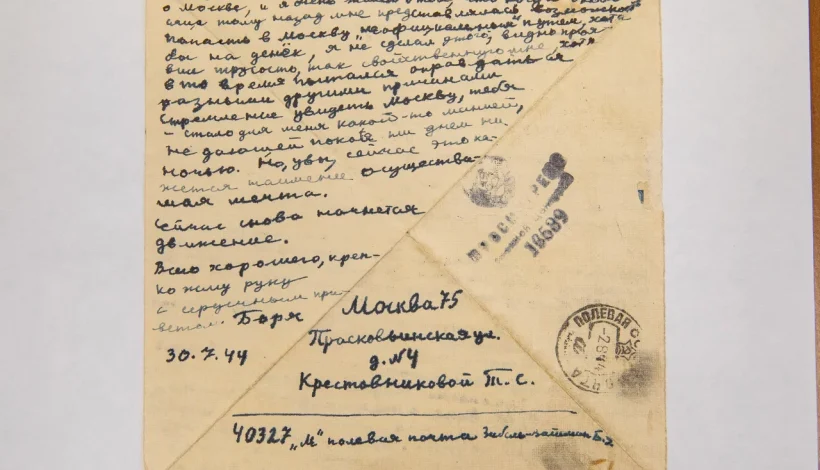 о Москве, и я очень
тому назад мне представлялась возможность
попасть в Москву неофициальным путем, хотя
бы на денёк, я не сделал этого, видно проя-
вив трусость, так свойственную мне, хотя
в то время пытался оправдаться
разными другими причинами
Стремление увидеть Москву, тебя
– стало для меня какой-то манией,
не дающей покоя ни днем ни
ночью. Но, увы, сейчас это ка-
жется наименее осуществи-
мая мечта.
Сейчас снова начнется
движение.
Всего хорошего, креп-
ко жму руку
с сердечным при-
ветом. Боря
30.7.44
ПРОСМОТРЕНО
Военной
16599
Москва 75
Прасковьинская ул.
д. №4
Крестовниковой Т. С.
ПОЛЕВАЯ ПОЧТА
-2 8 44
40327 „М" полевая почта